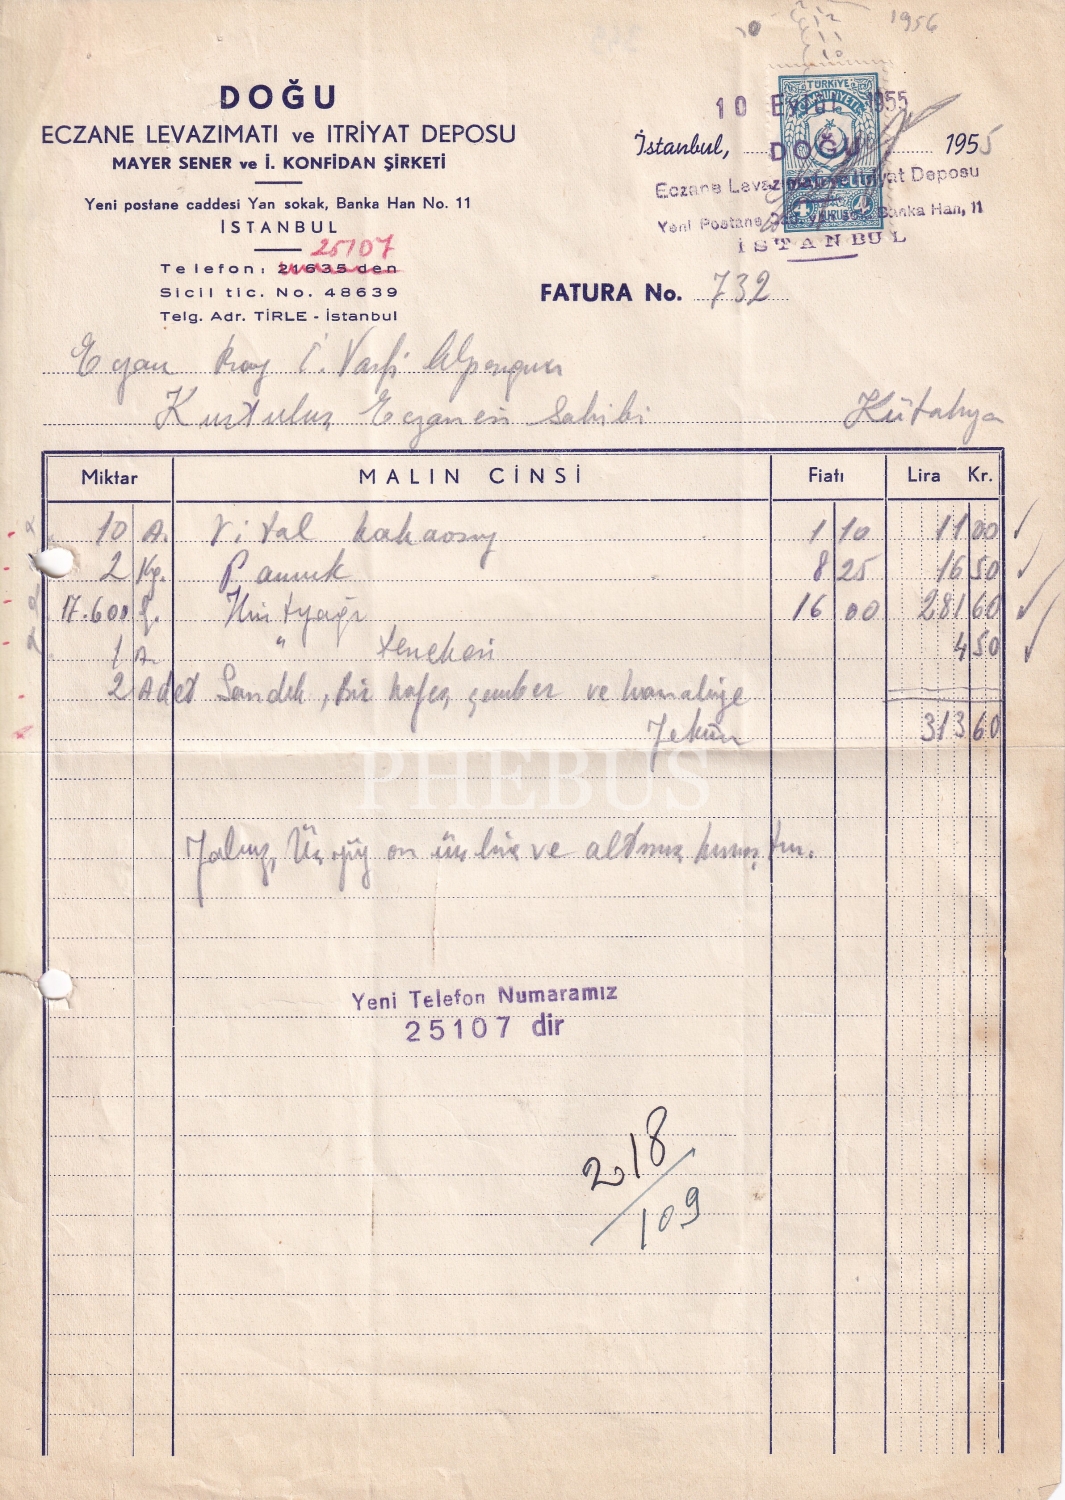 1956
DOĞU
ECZANE LEVAZIMATI ve ITRİYAT DEPOSU
MAYER SENER ve İ. KONFİDAN ŞİRKETİ
Yeni postane caddesi Yan sokak, Banka Han No. 11
İSTANBUL
25107
Telefon: 21635 den
Sicil tic. No. 48639
Telg. Adr. TİRLE - İstanbul
TÜRKİYE
CUMHURİYETİ
10 Eylül 1955
İstanbul, 1955
DOĞU
Eczane Levazımatı ve Itriyat Deposu
Yeni Postane Cad. Yan sok. Banka Han, 11
İSTANBUL
FATURA No. 732
Kurtuluş Eczanesi Sahibi Kütahya
Miktar MALIN CİNSİ Fiatı Lira Kr.
10 A. Vital 1 10 11 00
2 Kg. Pamuk 8 25 16 50
17.600 g. Hintyağı 16 00 281 60
1 A. " tenekesi 4 50
2 Adet Sandık, çember ve hamaliye
Yekûn 313 60
PHEBUS
Yalnız, Üçyüz on üç lira ve altmış kuruştur.
Yeni Telefon Numaramız
25107 dir
2018
109